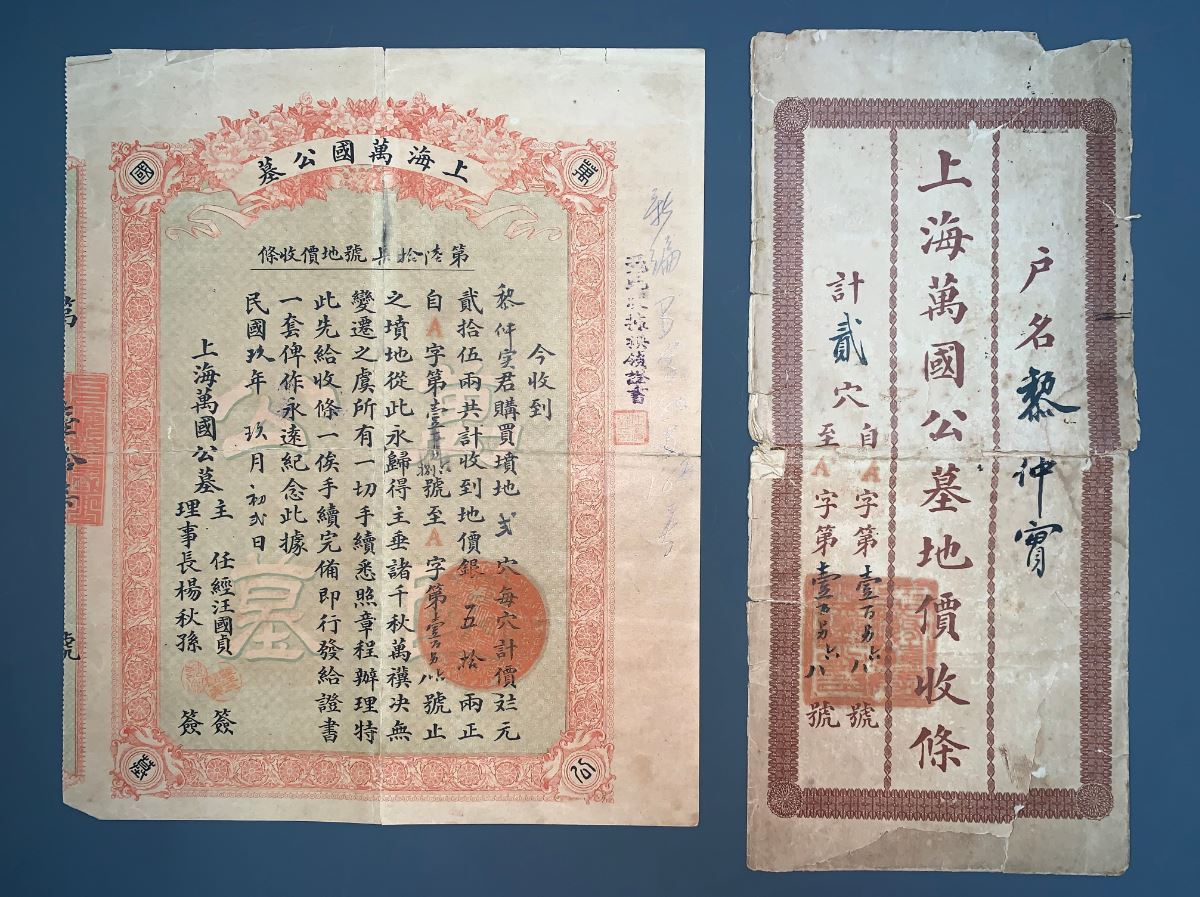 上海萬國公墓
萬
國
公
墓
第陸拾柒號地價收條
今收到
黎仲實君購買墳地弍穴每穴計價元
貳拾伍兩共計收到地價銀五拾兩正
自A字第壹百 號至A字第壹百 號止
之墳地從此永歸得主垂諸千秋萬禩決無
變遷之虞所有一切手續悉照章程辦理特
此先給收條一俟手續完備即行發給證書
一套俾作永遠紀念此據
民國玖年玖月初弍日
上海萬國公墓主任經汪國貞簽
理事長楊秋孫簽
新編
換領證書
萬
號
户名黎仲實
上海萬國公墓地價收條
計貳穴
自A字第壹百另六八號
至A字第壹百另六八號